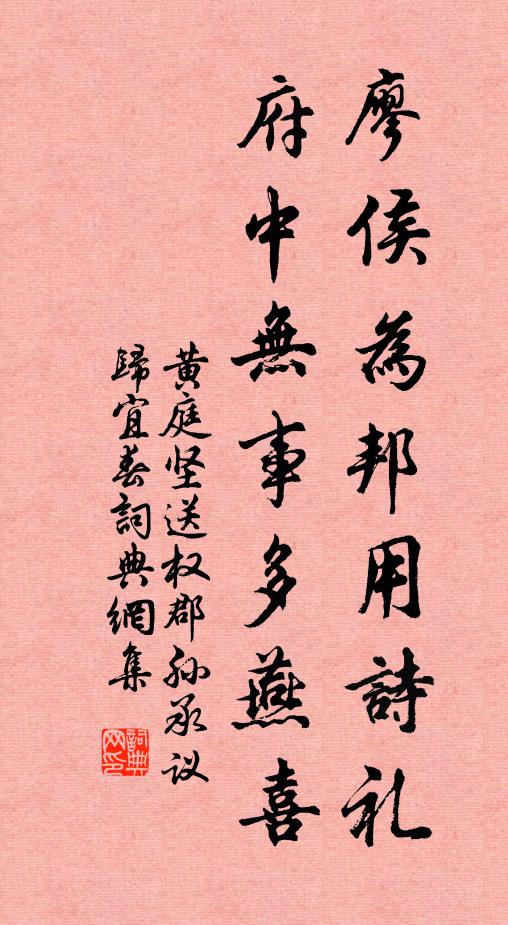 廖侯為邦用詩礼
府中無事多燕喜
黄庭坚送权郡孙承议
歸宜春詞典網集
詞典网印